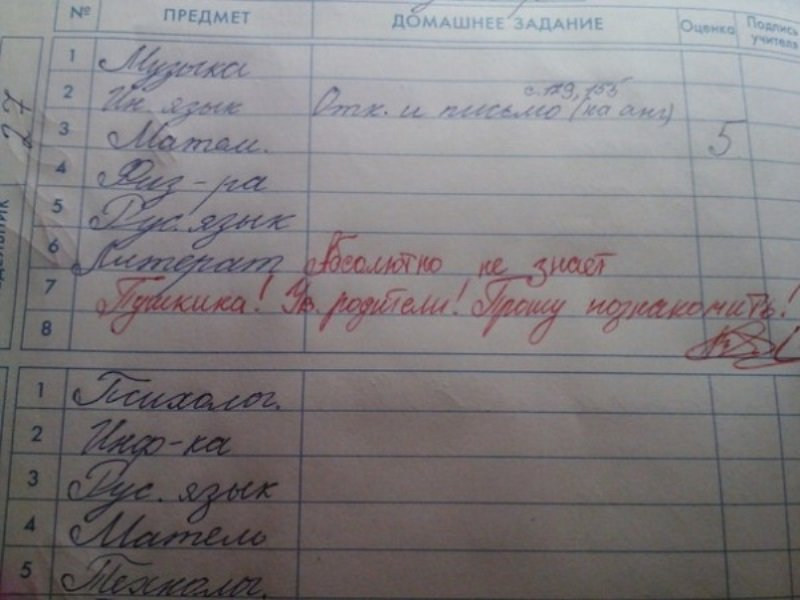 № ПРЕДМЕТ ДОМАШНЕЕ ЗАДАНИЕ Оценка Подпись учителя
27
1 Музыка
с. 129, 155
2 Ин. язык Отк. и письмо (на анг)
3 Матем. 5
4 Физ-ра
5 Рус. язык
6 Литерат Абсолютно не знает
7 Пушкика! Ув. родители! Прошу познакомить!
8
1 Психолог.
2 Инф-ка
3 Рус. язык
4 Матем
5 Технолог.